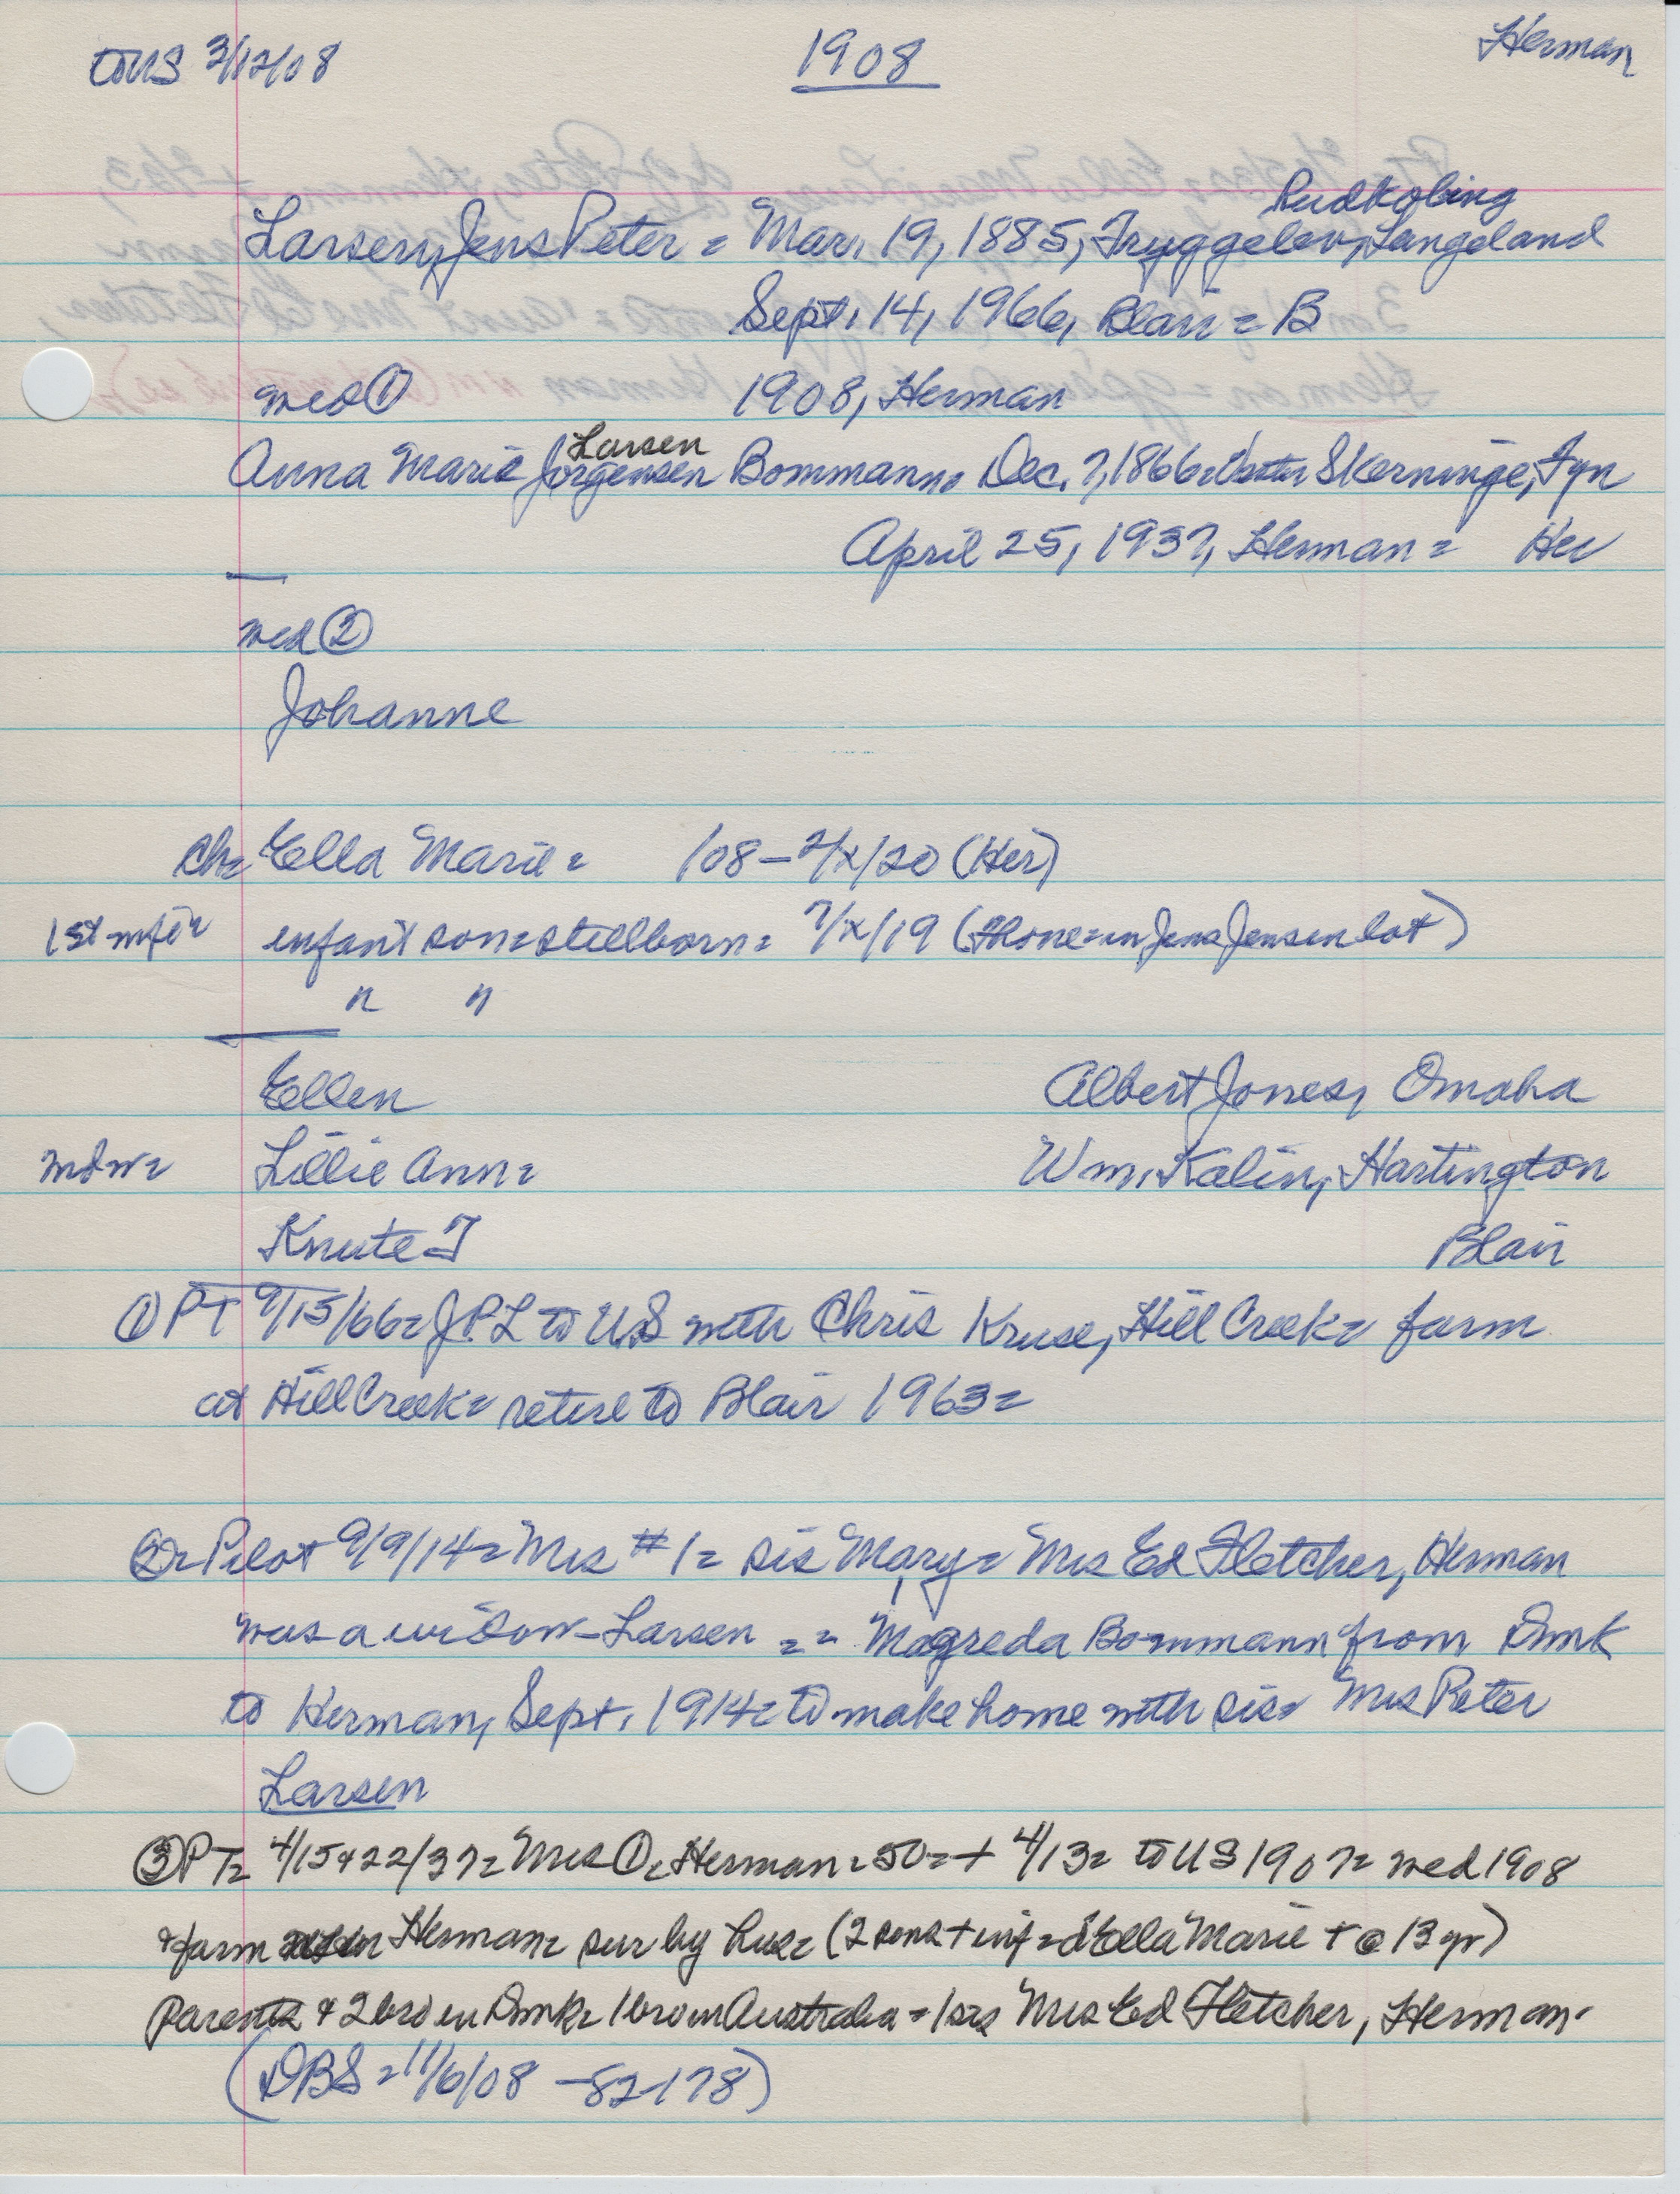 to US 3/12/08 1908 Herman
Rudkobing
Larsen, Jens Peter = Mar. 19, 1885, Tryggelev, Langeland
Sept. 14, 1966, Blair = B
wed ① 1908, Herman
Larsen
Anna Marie Jorgensen Bommann = Dec. ?, 1866 = Vester Skerninge, Fyn
April 25, 1937, Herman = Her
wed ②
Johanne
Ch = Ella Marie = /08 – 2/x/20 (Her)
1st wife = infant son = stillborn = 7/x/19 (Hone = in Jens Jensen lot)
" "
Ellen Albert Jones, Omaha
2nd w = Lillie Ann = Wm. Kalin, Hartington
Knute J Blair
① PT 9/15/66 = J.P.L to US with Chris Kruse, Hill Creek = farm
at Hill Creek = retire to Blair 1963 =
② = Pilot 9/9/14 = Mrs #1 = sis Mary = Mrs Ed Fletcher, Herman
was a widow – Larsen = = Magreda Bommann from Dmk
to Herman, Sept. 1914 = to make home with sis = Mrs Peter
Larsen
③ PT = 4/15 + 22/37 = Mrs ① = Herman = 50 = + 4/13 = to US 1907 = wed 1908
+ farm Herman = sur by hus = (2 sons + inf = d Ella Marie + @ 13 yr)
Parents + 2 bro in Dmk = 1 bro in Australia = 1 sis Mrs Ed Fletcher, Herman.
(DBS = 11/6/08 – 82-178)